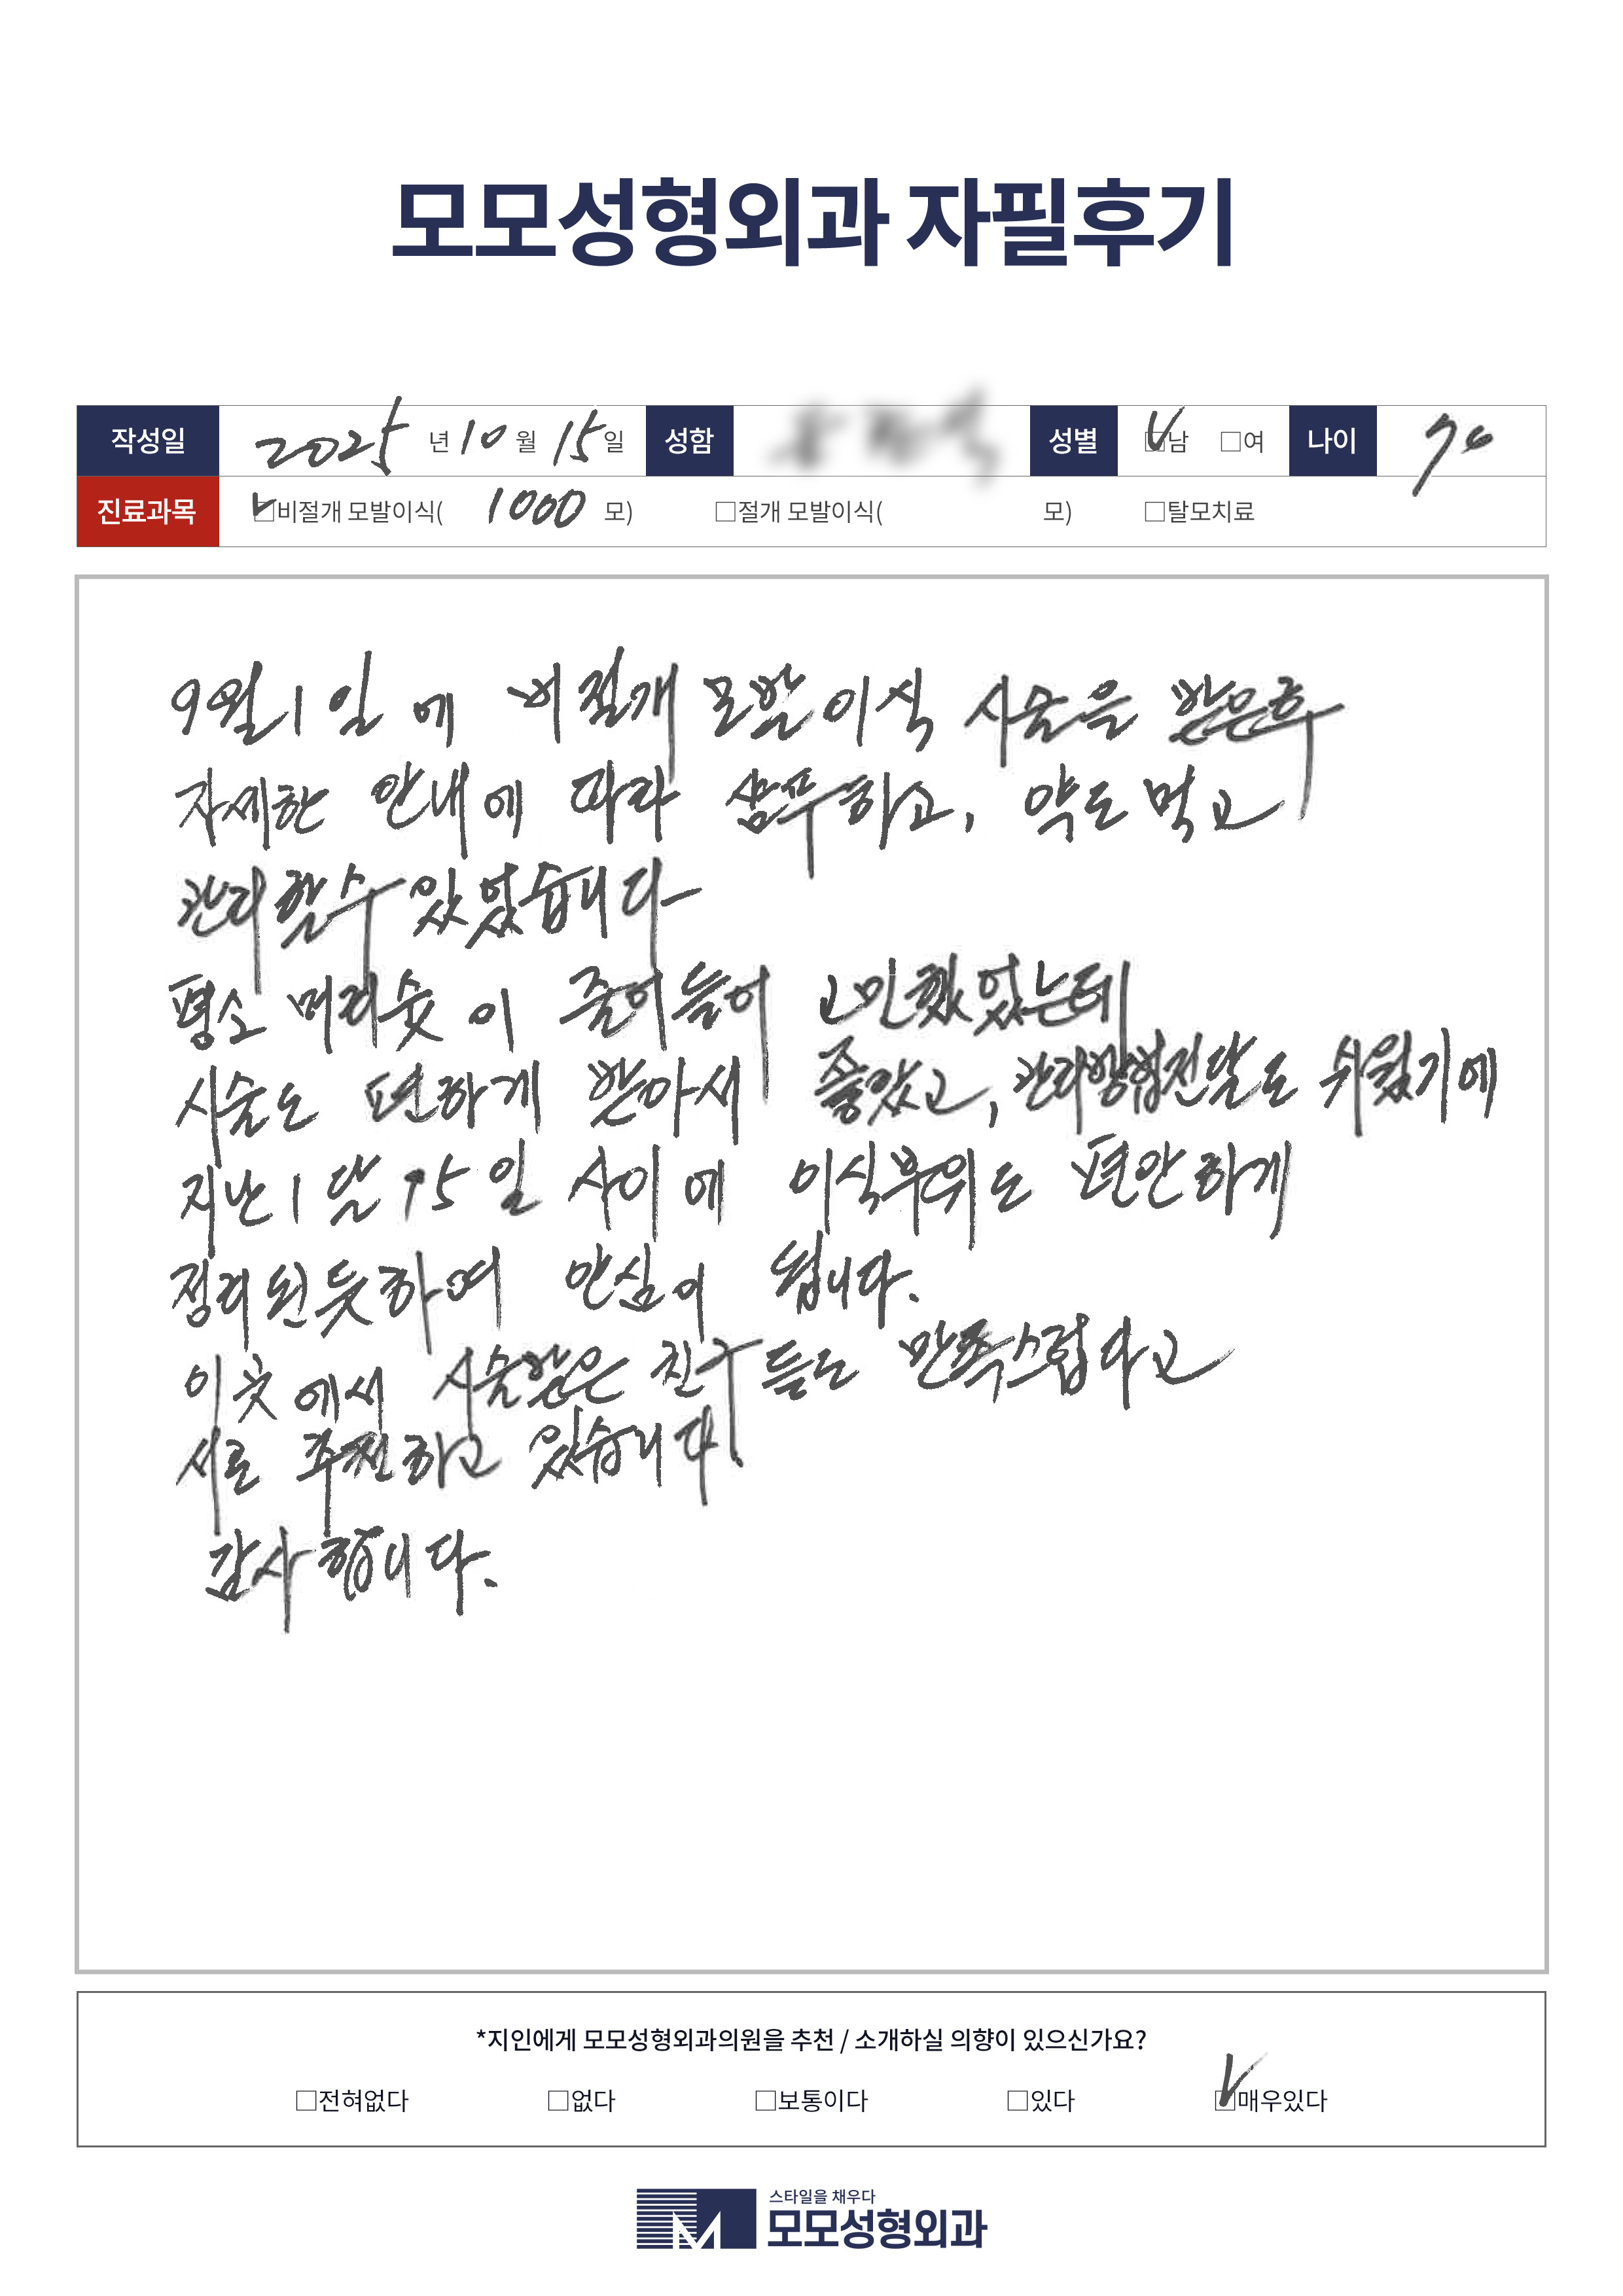 모모성형외과 자필후기
작성일 2025 년 10 월 15 일 성함 성별 ☑남 □여 나이 70
진료과목 ☑비절개 모발이식( 1000 모) □절개 모발이식( 모) □탈모치료
9월 1일에 비절개 모발이식 시술을 받은후
자세한 안내에 따라 샴푸하고, 약도 먹고
관리할수 있었습니다
평소 머리숯이 줄어들어 고민했었는데
시술도 편하게 받아서 좋았고, 관리방법전달도 쉬웠기에
지난 1달 15일 사이에 이식부위도 편안하게
정리된듯하여 안심이 됩니다.
이곳에서 시술받은 친구들도 만족스럽다고
서로 추천하고 있습니다.
감사합니다.
*지인에게 모모성형외과의원을 추천 / 소개하실 의향이 있으신가요?
□전혀없다 □없다 □보통이다 □있다 ☑매우있다
스타일을 채우다
모모성형외과